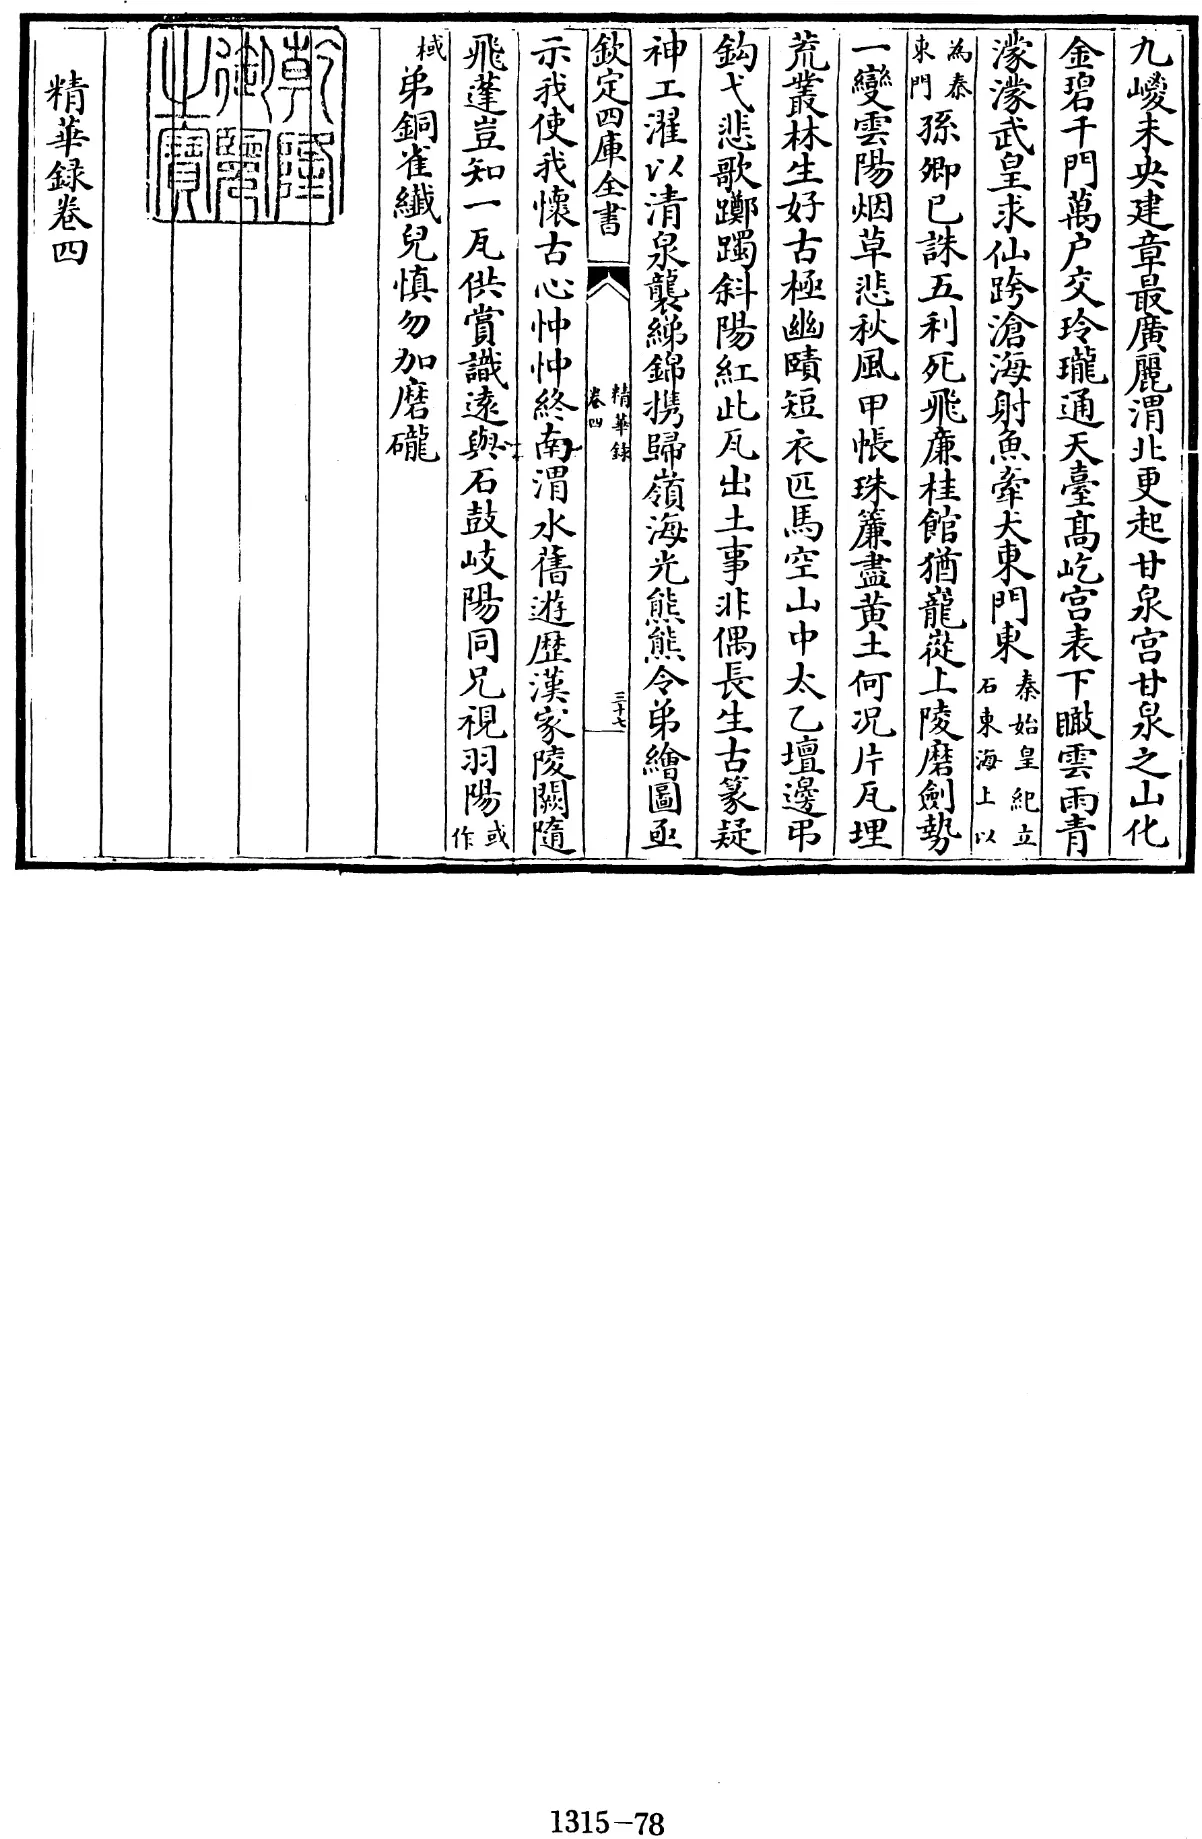 九嵕未央建章最廣麗渭北更起甘泉宫甘泉之山化
金碧千門萬户交玲瓏通天臺高屹宫表下瞰雲雨青
濛濛武皇求仙跨滄海射魚牽犬東門東秦始皇紀立石東海上以
為秦東門孫卿已誅五利死飛廉桂館猶巃嵸上陵磨劍勢
一變雲陽烟草悲秋風甲帳珠簾盡黄土何况片瓦埋
荒叢林生好古極幽賾短衣匹馬空山中太乙壇邊弔
鈎弋悲歌躑躅斜陽紅此瓦出土事非偶長生古篆疑
神工濯以清泉襲綈錦携歸嶺海光熊熊令弟繪圖亟
欽定四庫全書
精華録
卷四
三十七
示我使我懷古心忡忡終南渭水舊遊歴漢家陵闕隨
飛蓬豈知一瓦供賞識逺與石鼓岐陽同兄視羽陽或作
棫弟銅雀纎兒慎勿加磨礲
乾隆御覽之寶
精華録卷四
1315-78